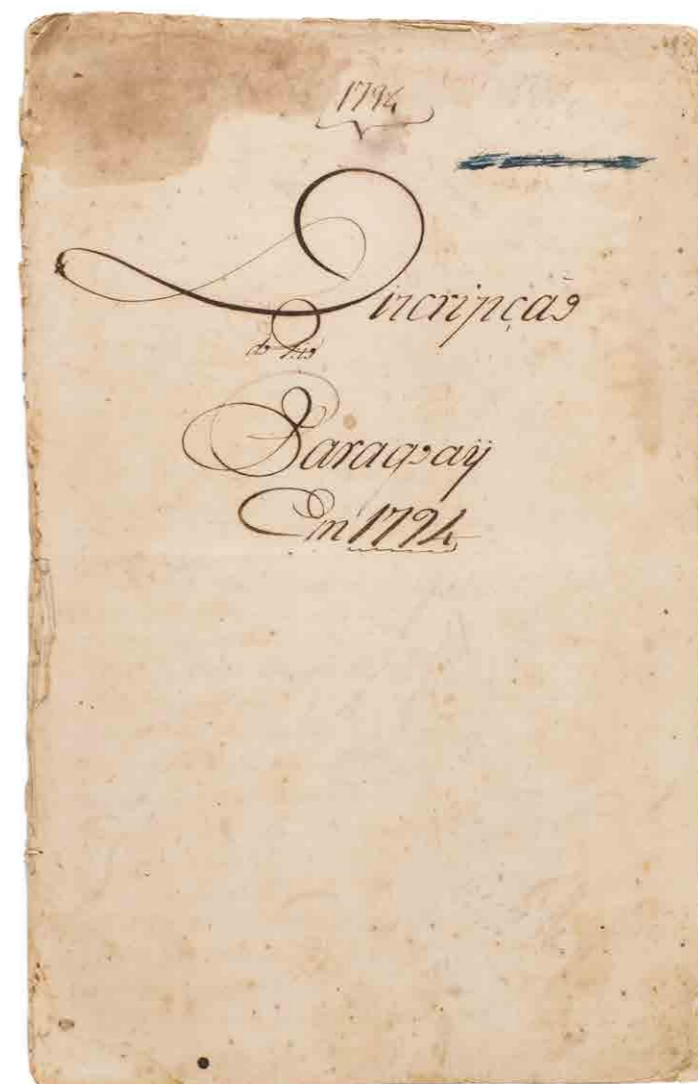 1794
Discripção
do Rio
Paraguay
Em 1794